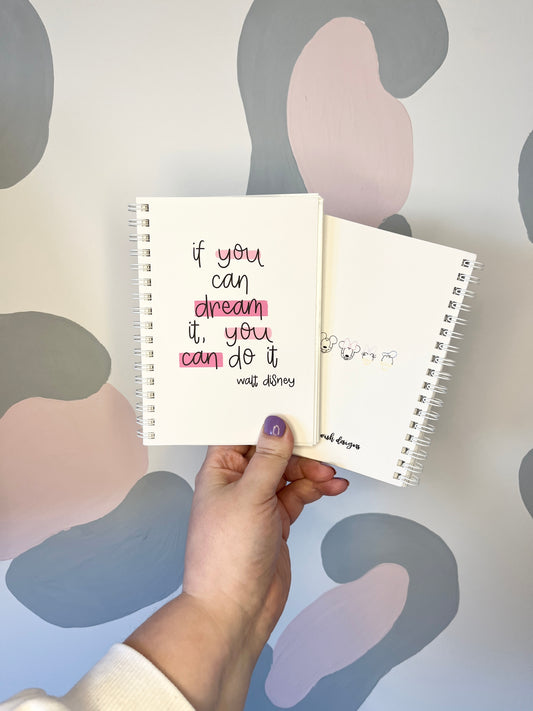 if you
can
dream
it, you
can do it
walt disney
designs